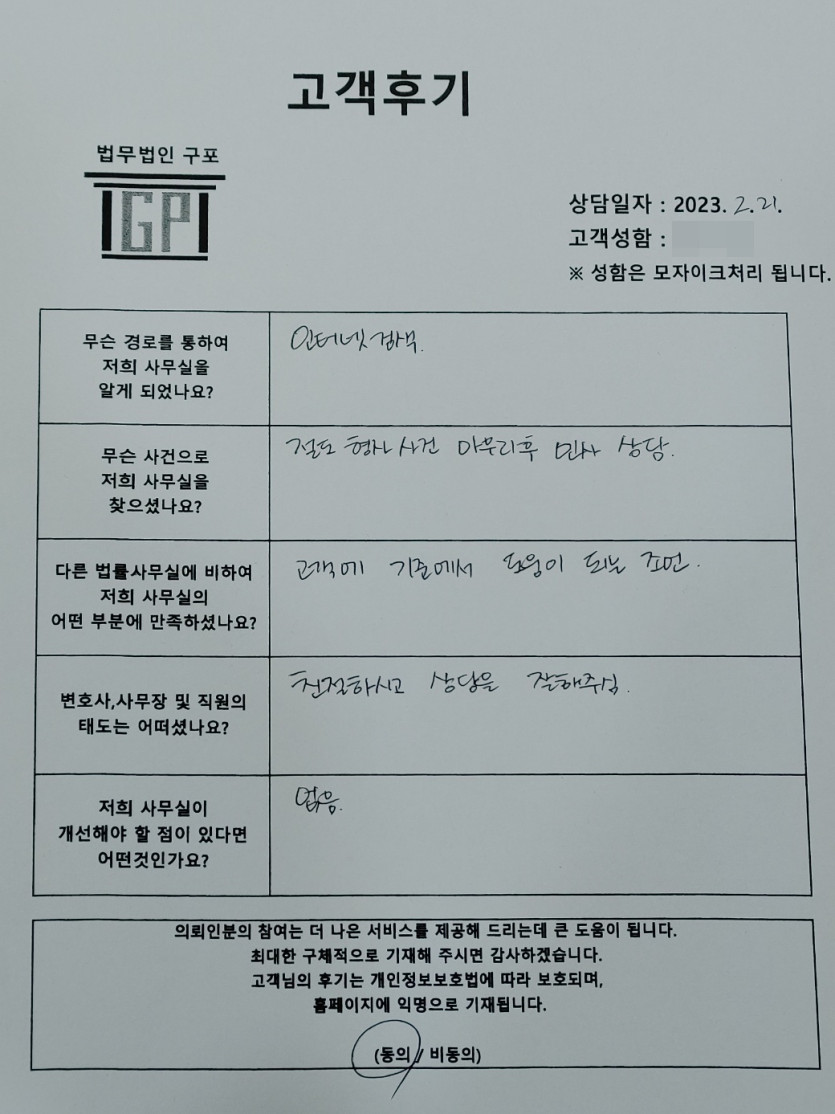 고객후기
법무법인 구포
GP
상담일자 : 2023. 2. 21.
고객성함 :
※ 성함은 모자이크처리 됩니다.
무슨 경로를 통하여
저희 사무실을
알게 되었나요?
인터넷 검색.
무슨 사건으로
저희 사무실을
찾으셨나요?
절도 형사 사건 마무리후 민사 상담.
다른 법률사무실에 비하여
저희 사무실의
어떤 부분에 만족하셨나요?
고객에 기준에서 도움이 되는 조언.
변호사,사무장 및 직원의
태도는 어떠셨나요?
친절하시고 상담을 잘해주심.
저희 사무실이
개선해야 할 점이 있다면
어떤것인가요?
없음.
의뢰인분의 참여는 더 나은 서비스를 제공해 드리는데 큰 도움이 됩니다.
최대한 구체적으로 기재해 주시면 감사하겠습니다.
고객님의 후기는 개인정보보호법에 따라 보호되며,
홈페이지에 익명으로 기재됩니다.
(동의 / 비동의)